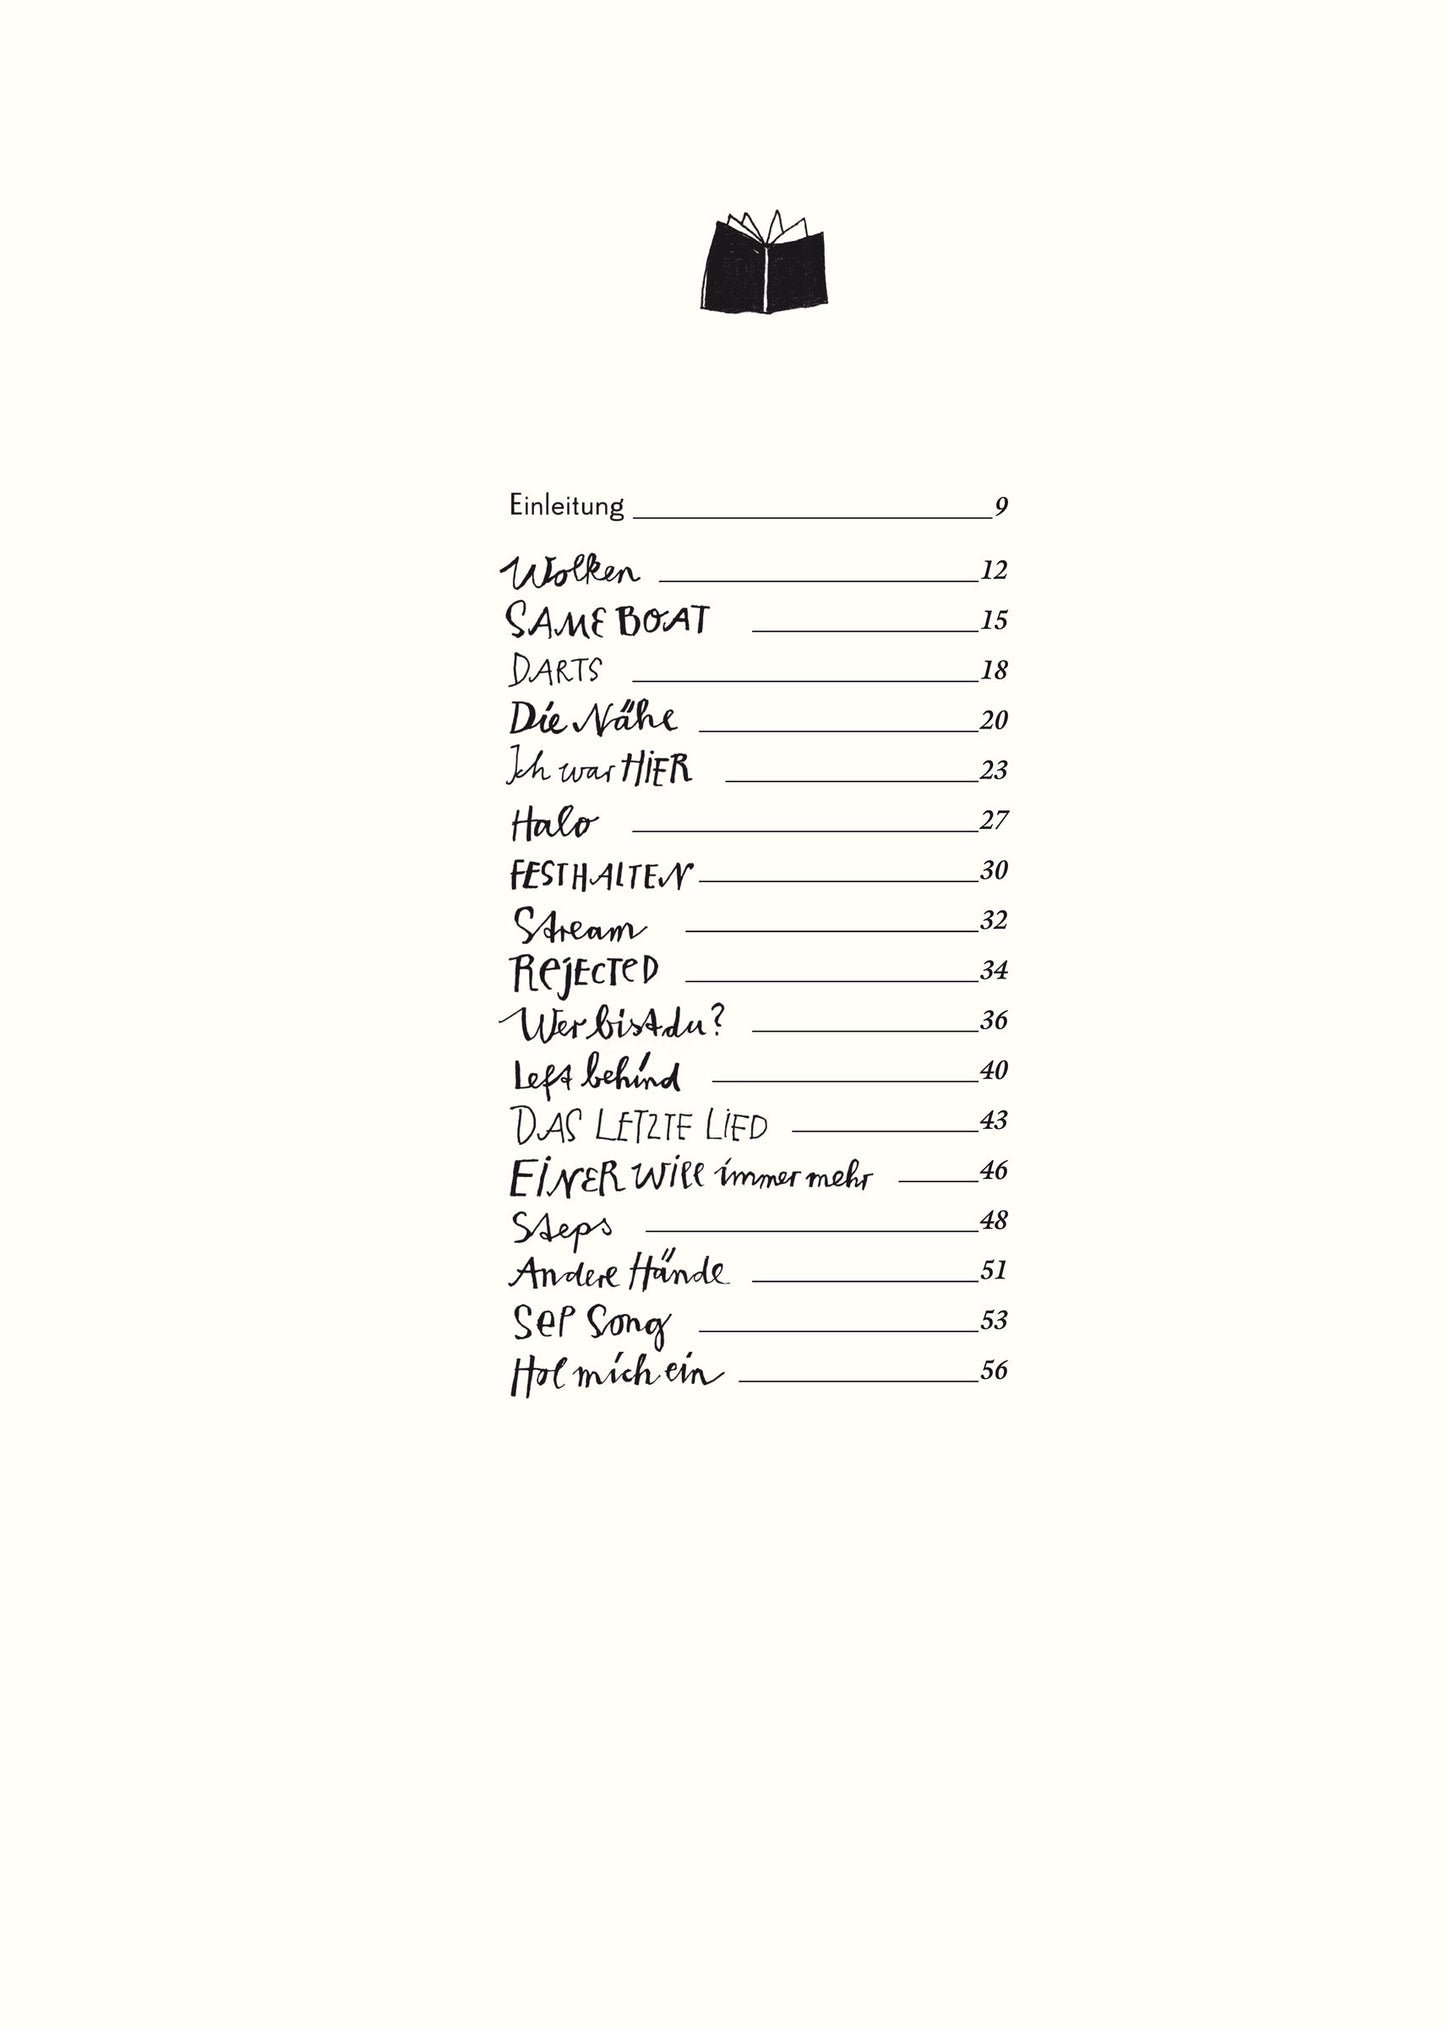 Einleitung 9
Wolken 12
SAME BOAT 15
DARTS 18
Die Nähe 20
Ich war HiER 23
Halo 27
FESTHALTEN 30
Stream 32
RejEcTeD 34
Wer bist du? 36
Left behind 40
DAS LETZTE LiED 43
EiNER Will immer mehr 46
Steps 48
Andere Hände 51
SeP Song 53
Hol mich ein 56